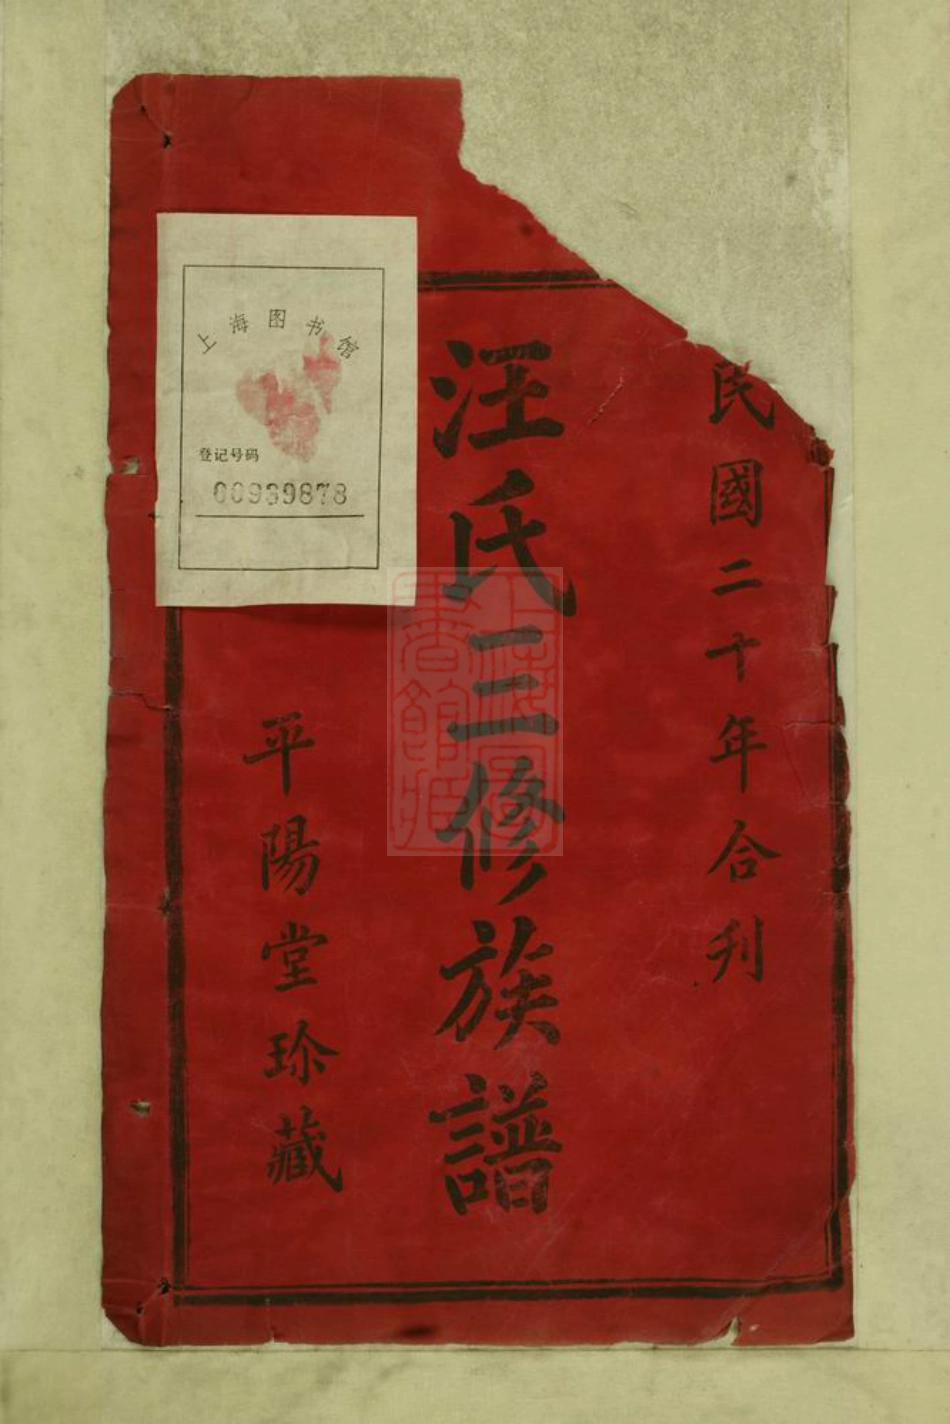 民國二十年合刋
汪氏三修族譜
平陽堂珍藏
上海图书馆
登记号码
00939878
上海圖書館藏